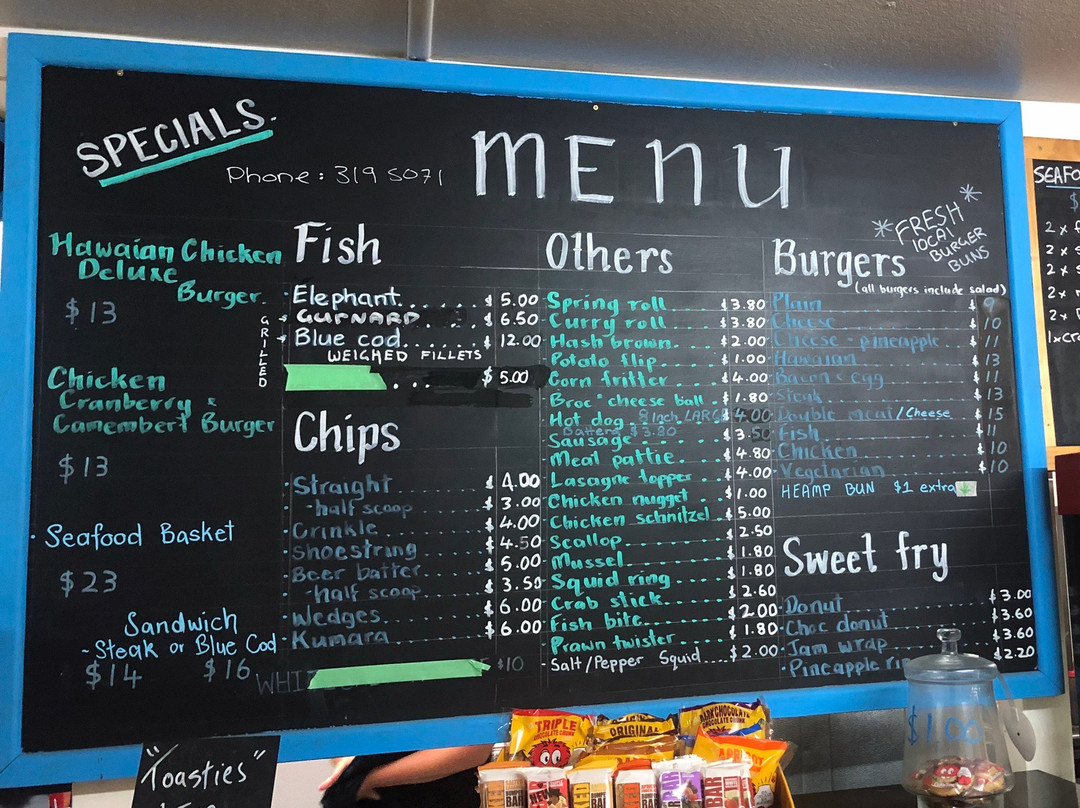 SPECIALS.
Phone: 319 5071
MENU
Hawaiian Chicken
Deluxe
Burger.
$13
Chicken
Cranberry &
Camembert Burger
$13
Seafood Basket
$23
Sandwich
~Steak or Blue Cod
$14 $16
Fish
GRILLED
Elephant....... $ 5.00
GURNARD..... $ 6.50
Blue cod....... $ 12.00
WEIGHED FILLETS
... $ 5.00
Chips
Straight $ 4.00
-half scoop $ 3.00
Crinkle $ 4.00
Shoestring $ 4.50
Beer batter $ 5.00
-half scoop $ 3.50
Wedges $ 6.00
Kumara $ 6.00
WHI $10
Others
Spring roll $ 3.80
Curry roll $ 3.80
Hash brown $ 2.00
Potato flip $ 1.00
Corn fritter $ 4.00
Broc & cheese ball $ 1.80
Hot dog 8 inch LARGE $ 4.00
Battered $3.30
Sausage $ 3.50
Meat pattie $ 4.80
Lasagne topper $ 4.00
Chicken nugget $ 1.00
Chicken schnitzel $ 5.00
Scallop $ 2.50
Mussel $ 1.80
Squid ring $ 1.80
Crab stick $ 2.60
Fish bite $ 2.00
Prawn twister $ 1.80
Salt/Pepper Squid.... $ 2.00
*FRESH*
LOCAL
BURGER
BUNS
Burgers
(all burgers include salad)
Plain $ 9
Cheese $ 10
Cheese & pineapple $ 11
Hawaiian $ 13
Bacon & egg $ 11
Steak $ 13
Double meat/Cheese $ 15
Fish $ 11
Chicken $ 10
Vegetarian $ 10
HEAMP BUN $1 extra
Sweet fry
Donut $ 3.00
Choc donut $ 3.60
Jam wrap $ 3.60
Pineapple $ 2.20
SEAFO
$
2 x
2 x
2 x
2 x
2 x
1x
"Toasties"
TRIPLE
CHOCOLATE CHUNK
ORIGINAL
DARK CHOCOLATE
CHUNK
BAR
BAR
BAR
$1.00